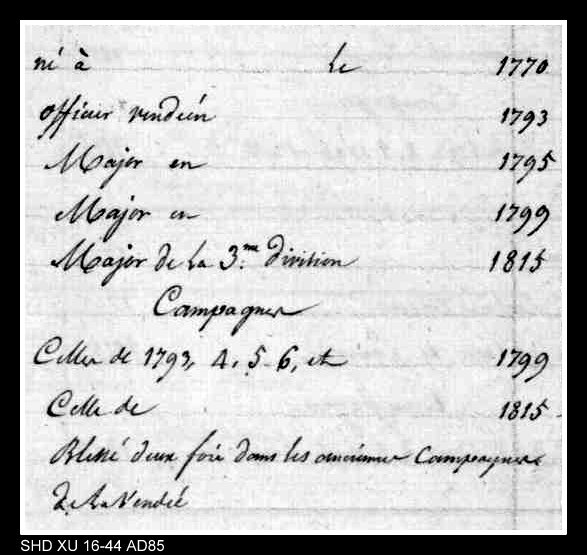 né à le 1770
officier vendéen 1793
Major en 1795
Major en 1799
Major de la 3.me division 1815
Campagnes
Celles de 1793, 4, 5 6, et 1799
Celle de 1815
Blessé deux fois dans les anciennes Campagnes
de la Vendée
SHD XU 16-44 AD85